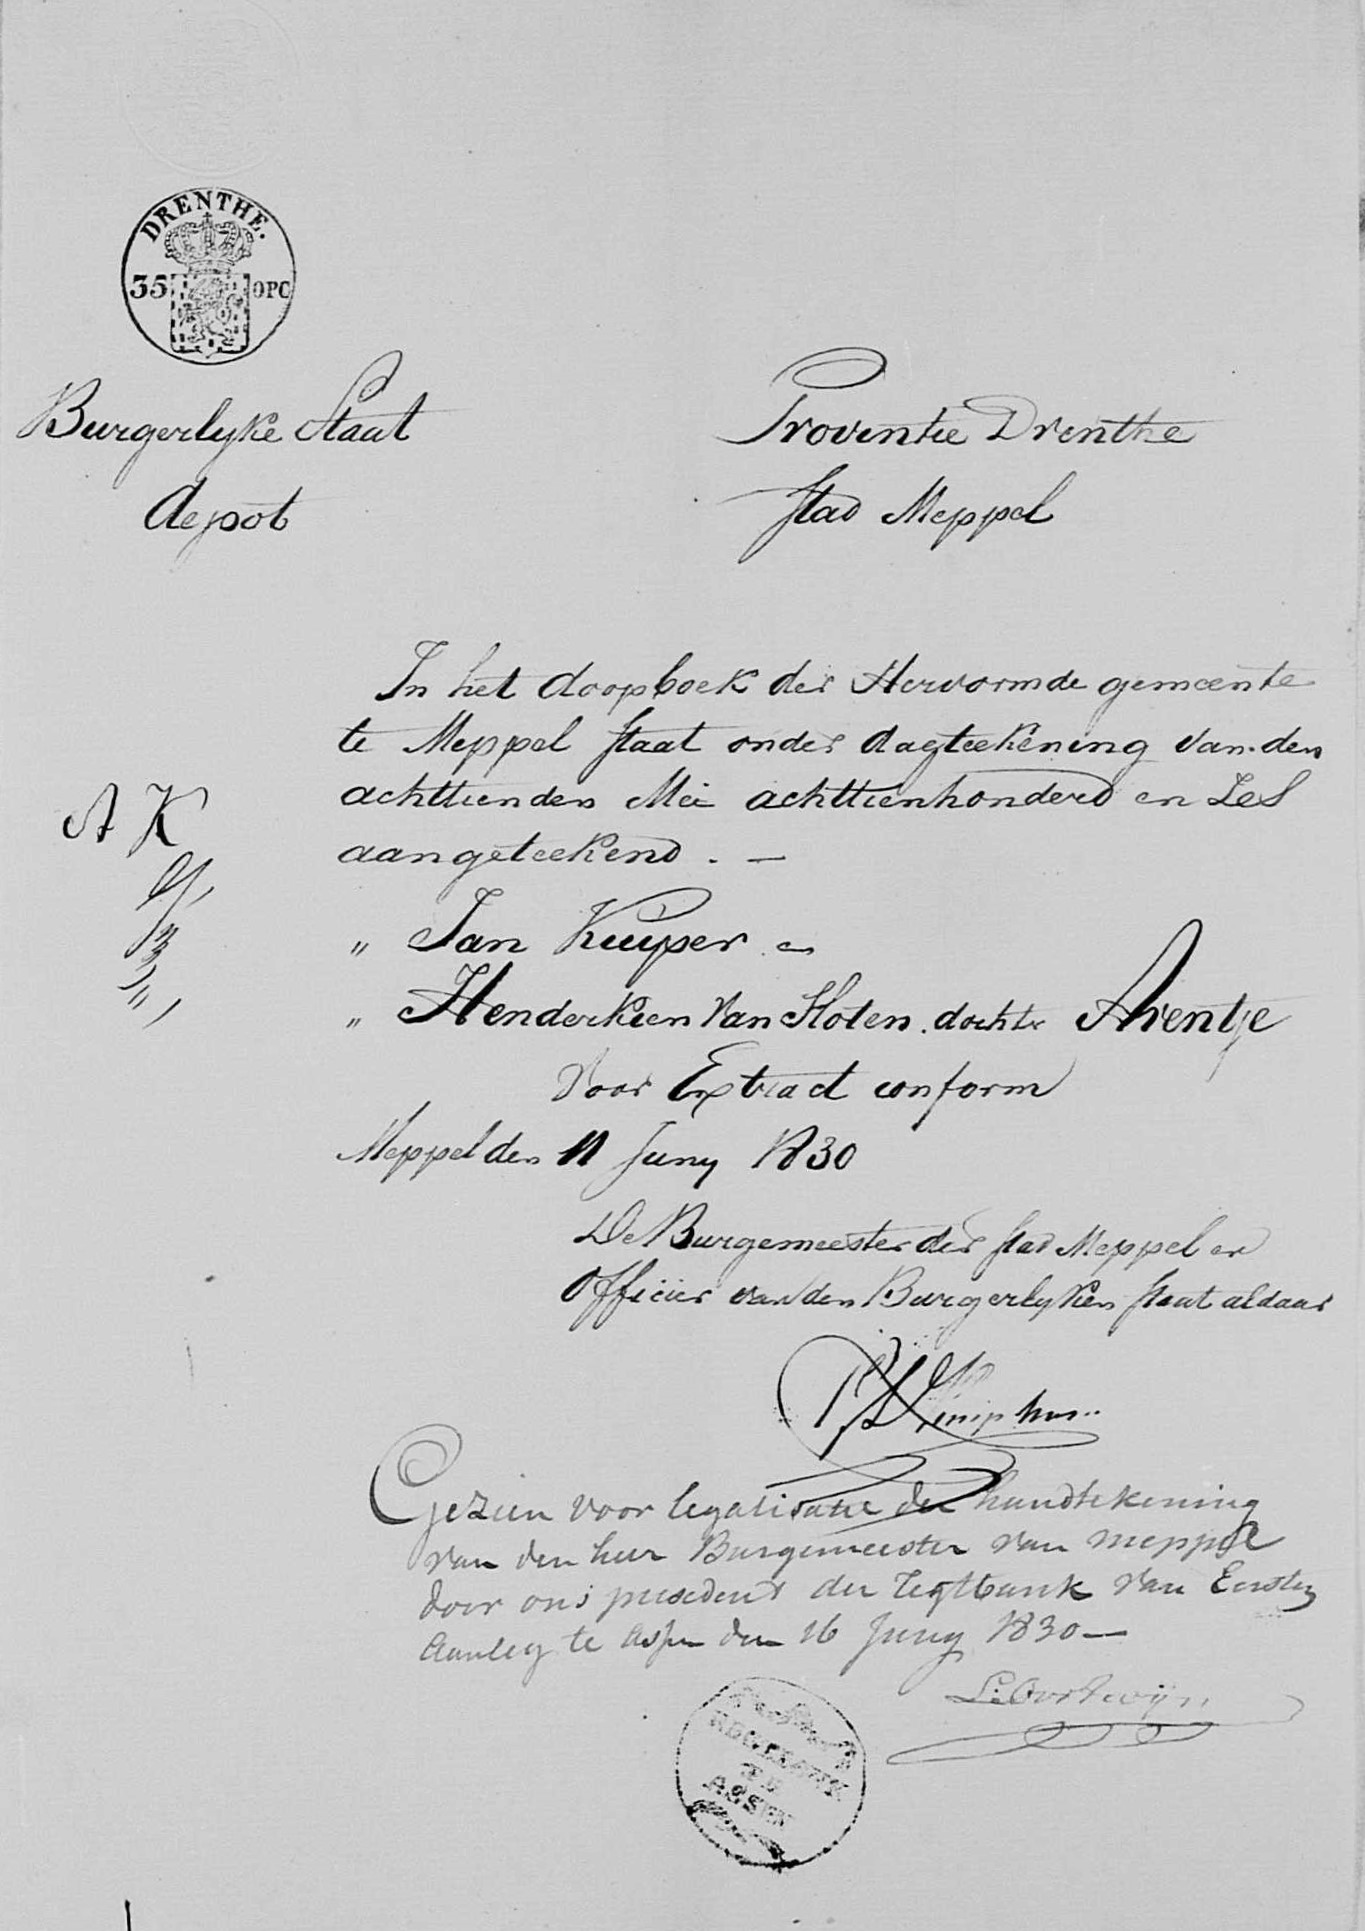 DRENTHE.
35 OPC
Burgerlyke Staat
depot
Provintie Drenthe
stad Meppel
In het doopboek der Hervormde gemeente
te Meppel staat onder dagteekening van den
achttienden Mei achttienhonderd en Zes
aangeteekend. —
A K
" Jan Kuyper en
" Henderkien van Sloten. dochter Arentje
Voor Extract conform
Meppel den 11 Juny 1830
De Burgemeester der stad Meppel en
Officier van den Burgerlyken staat aldaar
Gezien voor legalisatie der handtekening
van den heer Burgemeester van Meppel
door ons president der regtbank van Eersten
Aanleg te Assen den 16 Juny 1830—
REGTBANK
TE
ASSEN